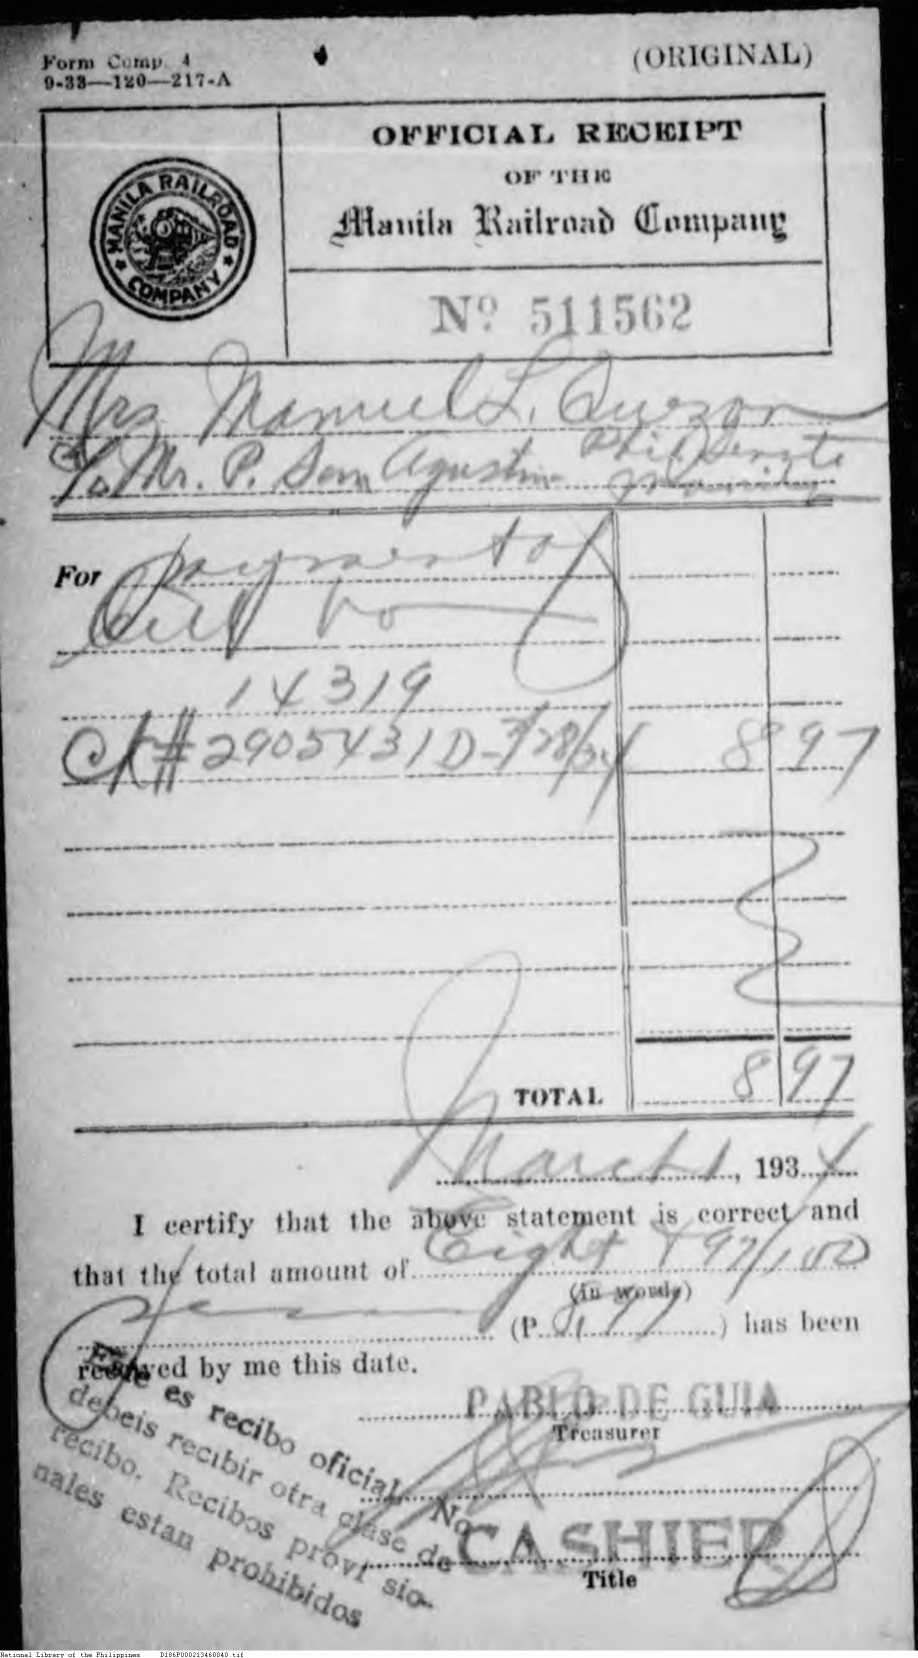 Form Comp. 4
9-33—120—217-A
(ORIGINAL)
MANILA RAILROAD
COMPANY
OFFICIAL RECEIPT
OF THE
Manila Railroad Company
Nº 511562
Mrs Manuel L. Quezon
c/o Mr. P. San Agustin Phil Senate
Manila
For payment of
Bill No
14319
CK# 2905431D-2/28/34 8 97
TOTAL 8 97
March 1, 1934
I certify that the above statement is correct and
that the total amount of Eight & 97/100
(in words)
(P 8.97) has been
received by me this date.
PABLO DE GUIA
Treasurer
CASHIER
Title
Este es recibo oficial. No
debeis recibir otra clase de
recibo. Recibos provisio-
nales estan prohibidos
National Library of the Philippines D186P000213460040.tif